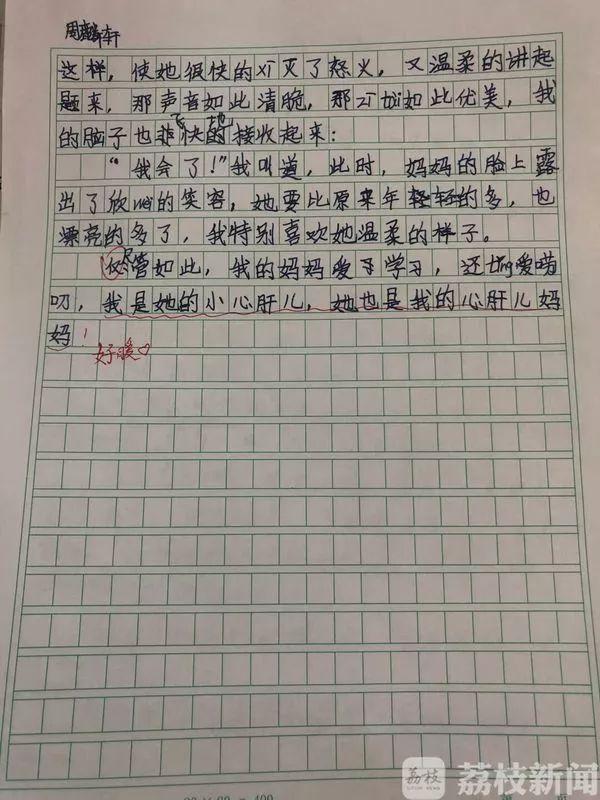 周麟轩
这样，使她很快的xī灭了怒火，又温柔的讲起
题来，那声音如此清脆，那zī tài如此优美，我
的脑子也飞快地接收起来：
“我会了！”我叫道，此时，妈妈的脸上露
出了欣wèi的笑容，她要比原来年轻的多，也
漂亮的多了，我特别喜欢她温柔的样子。
尽管如此，我的妈妈爱学习，还tǐng爱唠
叨，我是她的小心肝儿，她也是我的心肝儿妈
妈！
好暖♡
荔枝
荔枝新闻
20×20=400